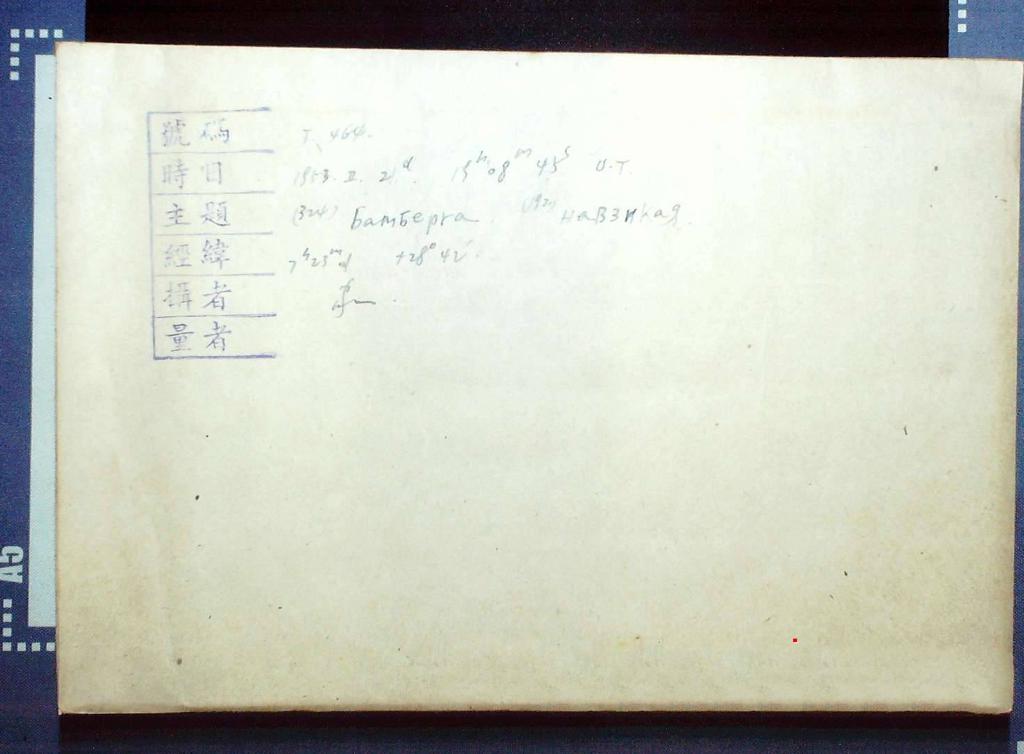 號碼 T. 464.
時日 1953. II. 21ᵈ. 15ʰ08ᵐ45ˢ U.T.
主題 (324) Бамберга (192) Навзикая.
經緯 7ʰ23ᵐ +28°42′
攝者
量者
A5